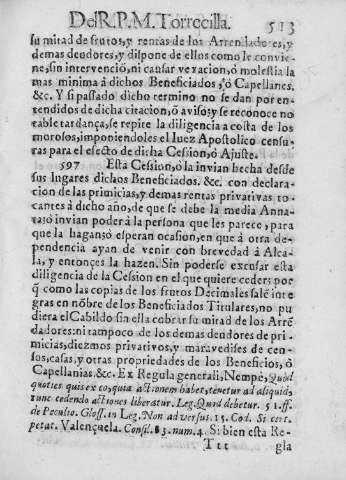 Del R. P. M. Torrecilla. 513
su mitad de frutos, y rentas de los Arrendadores, y
demas deudores, y dispone de ellos como le convie-
ne, sin intervenciõ, ni causar vexacion, ò molestia la
mas minima à dichos Beneficiados, ò Capellanes.
&c. Y si passado dicho termino no se dan por en-
tendidos de dicha citacion, ò aviso, y se reconoce no
table tardança, se repite la diligencia a costa de los
morosos, imponiendoles el Iuez Apostolico censu-
ras para el efecto de dicha Cession, ò Ajuste.
597 Esta Cession, ò la invian hecha desde
sus lugares dichos Beneficiados. &c. con declara-
cion de las primicias, y demas rentas privativas to-
cantes à dicho año, de que se debe la media Anna-
ta, ò invian poder à la persona que les parece, para
que la haga, ò esperan ocasion, en que à otra de-
pendencia ayan de venir con brevedad à Alca-
la, y entonçes la hazen. Sin poderse excusar esta
diligencia de la Cession en el que quiere ceder; por
q̃ como las copias de los frutos Decimales salẽ inte
gras en nõbre de los Beneficiados Titulares, no pu
diera el Cabildo sin ella cobrar su mitad de los Arrẽ
dadores: ni tampoco de los demas deudores de pri-
micias, diezmos privativos, y maravedises de cen-
sos, casas, y otras propriedades de los Beneficios, ò
Capellanias. &c. Ex Regula generali, Nempè, Quod
quoties quis ex eo, quia actionem habet, tenetur ad aliquid,
tunc cedendo actiones liberatur. Leg. Quod debetur. 51. ff.
de Peculio. Gloss. in Leg. Non adversus. 15. Cod. Si cert.
petat. Valençuela. Consil. 83. num. 4. Si bien esta Re-
Ttt gla